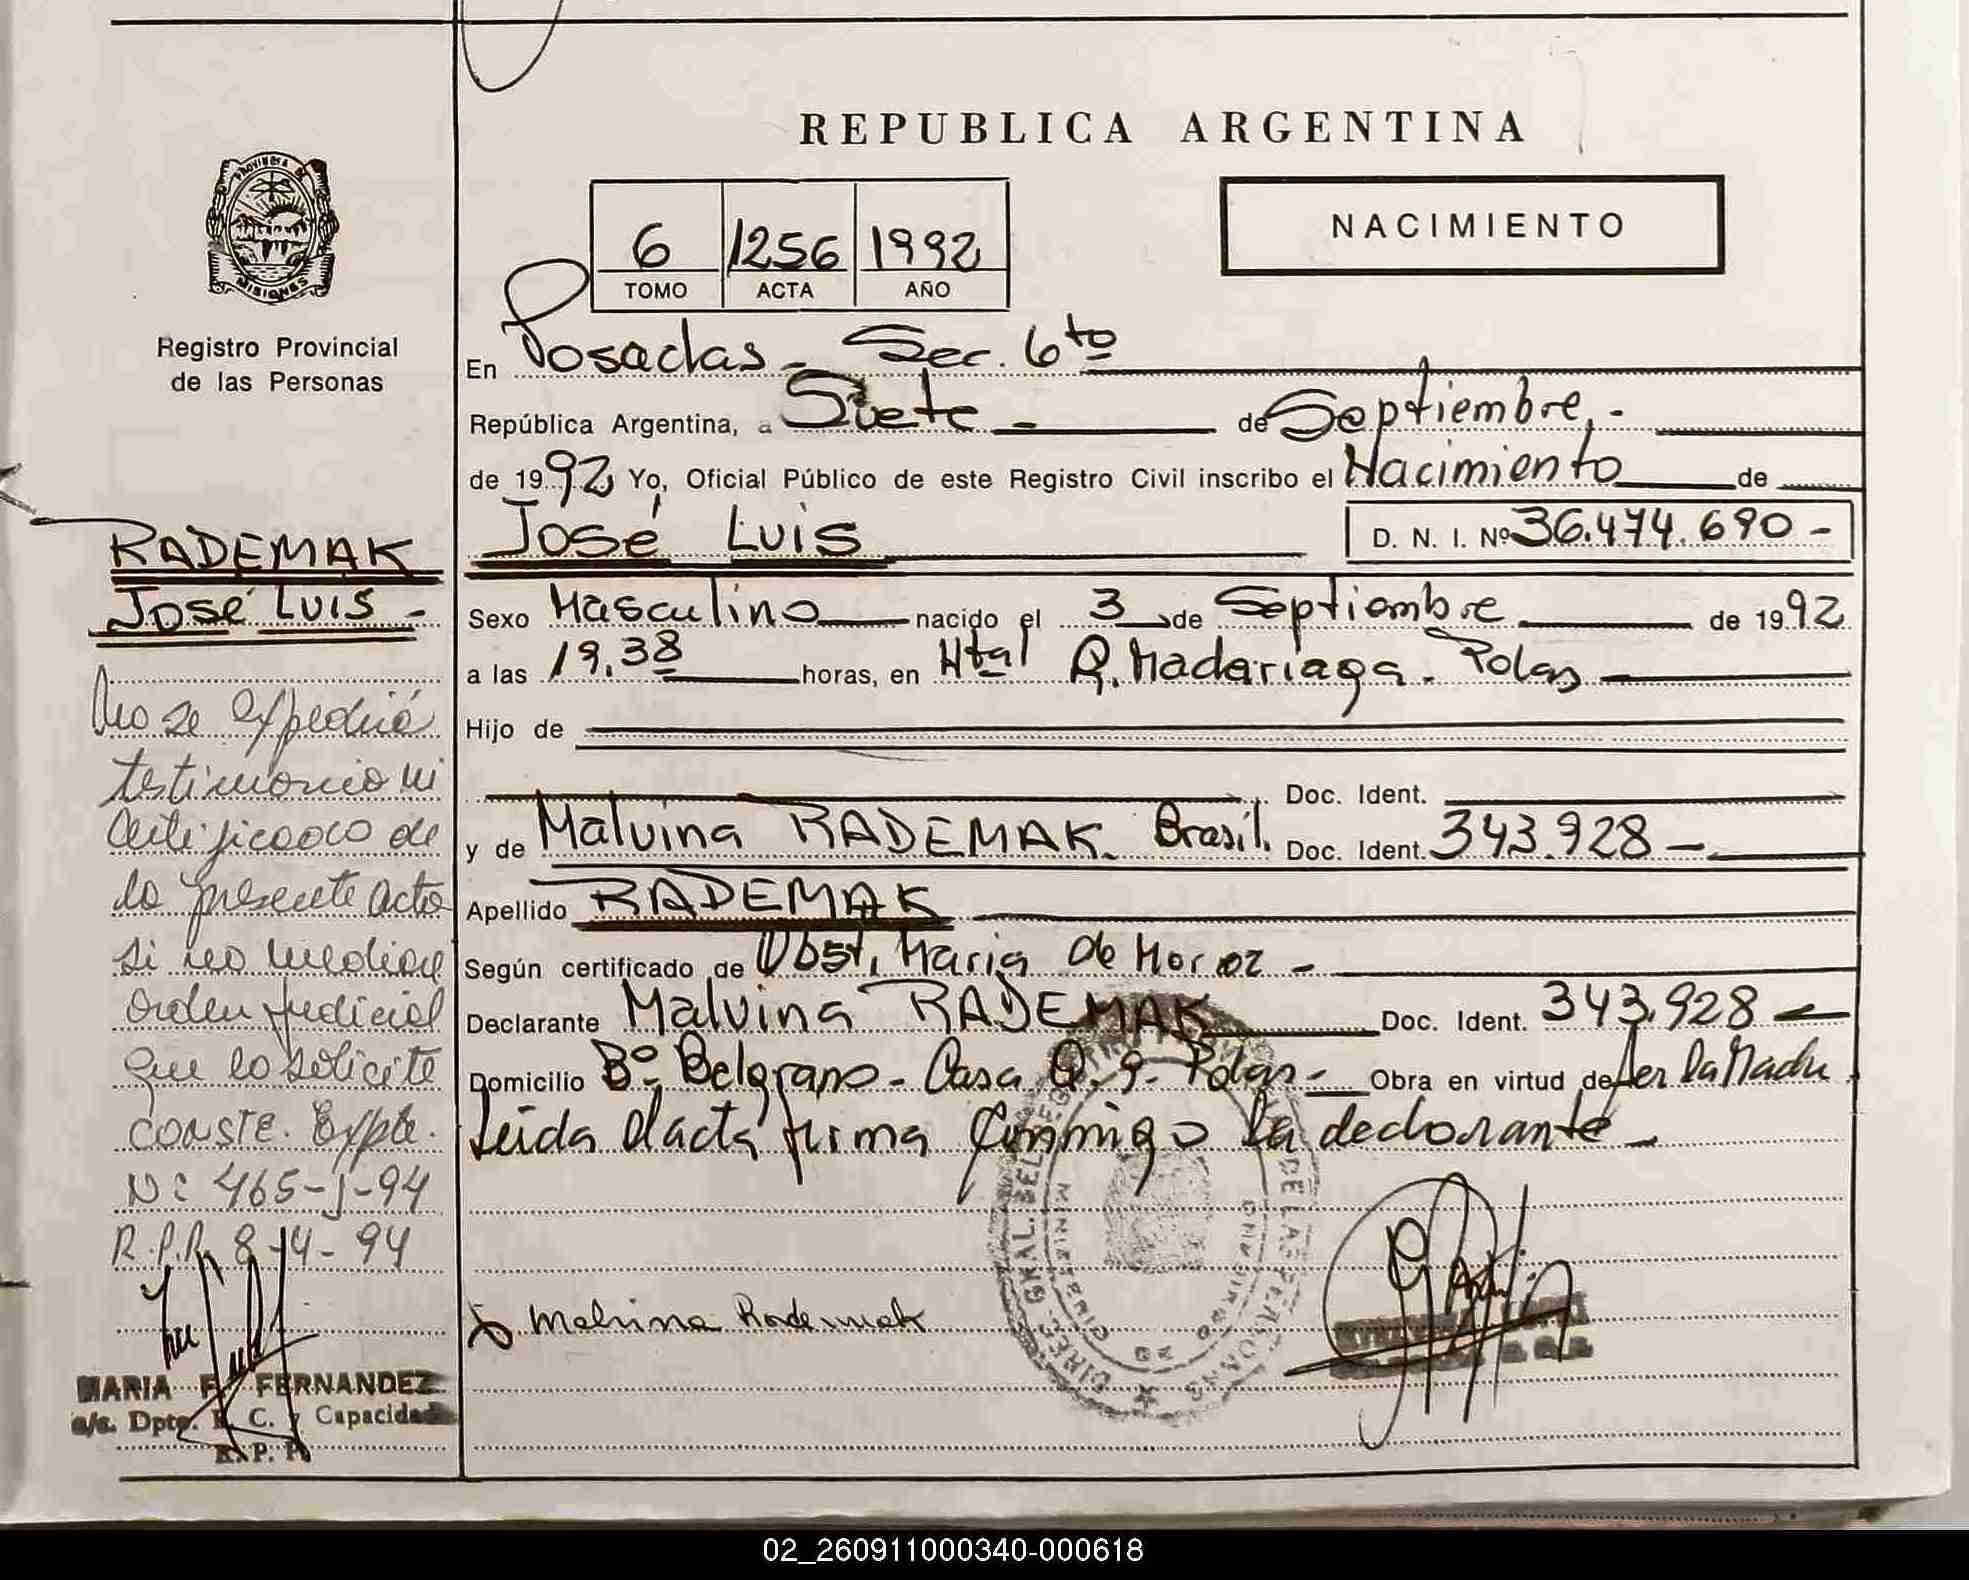 REPUBLICA ARGENTINA
PROVINCIA DE
MISIONES
Registro Provincial
de las Personas
NACIMIENTO
6 1256 1992
TOMO ACTA AÑO
En Posadas - Sec. 6to
República Argentina, a Siete - de Septiembre.-
de 1992 Yo, Oficial Público de este Registro Civil inscribo el Nacimiento de
José Luis D. N. I. Nº 36.474.690 -
Sexo Masculino nacido el 3 de Septiembre de 1992
a las 19.38 horas, en Htal R. Madariaga. Pdas
Hijo de
Doc. Ident.
y de Malvina RADEMAK. Brasil. Doc. Ident. 343.928 -
Apellido RADEMAK
Según certificado de Obst. Maria de Moroz -
Declarante Malvina RADEMAK Doc. Ident. 343.928
Domicilio Bº Belgrano - Casa Q. 9 - Pdas - Obra en virtud de ser la Madre
Leida el acta firma conmigo la declarante -
Malvina Rademak
RADEMAK
José Luis -
No se expedirá
testimonio ni
certificado de
la presente acta
si no mediare
orden judicial
que lo solicite
CONSTE. Expte.
Nº 465-J-94
R.P.P. 8-4-94
MARIA F. FERNANDEZ
a/c. Dpto. C. y Capacidad
R. P. P.
DIREC. GRAL. DEL REG. DE LAS PERSONAS
MINISTERIO DE GOBIERNO
02_260911000340-000618